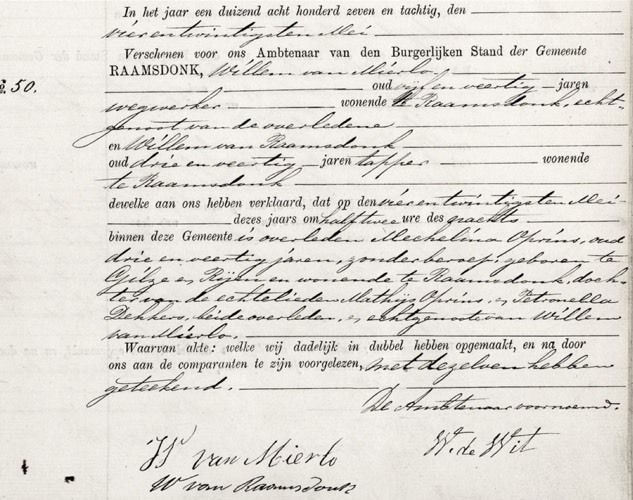 In het jaar een duizend acht honderd zeven en tachtig, den
vierentwintigsten Mei
Verschenen voor ons Ambtenaar van den Burgerlijken Stand der Gemeente
RAAMSDONK, Willem van Mierlo,
No. 50.
oud vijf en veertig jaren
wegwerker wonende te Raamsdonk, echt-
genoot van de overledene
en Willem van Raamsdonk
oud drie en veertig jaren tapper wonende
te Raamsdonk
dewelke aan ons hebben verklaard, dat op den vierentwintigsten Mei
dezes jaars om half twee ure des nachts
binnen deze Gemeente is overleden Mechelina Oprins, oud
drie en veertig jaren, zonder beroep, geboren te
Gilze en Rijen en wonende te Raamsdonk, doch-
ter van de echtelieden Mathijs Oprins, en Petronella
Dekkers, beide overleden, en echtgenoote van Willem
van Mierlo.
Waarvan akte: welke wij dadelijk in dubbel hebben opgemaakt, en na door
ons aan de comparanten te zijn voorgelezen, met dezelven hebben
geteekend.
De Ambtenaar voornoemd.
W van Mierlo
W. de Wit
W van Raamsdonk